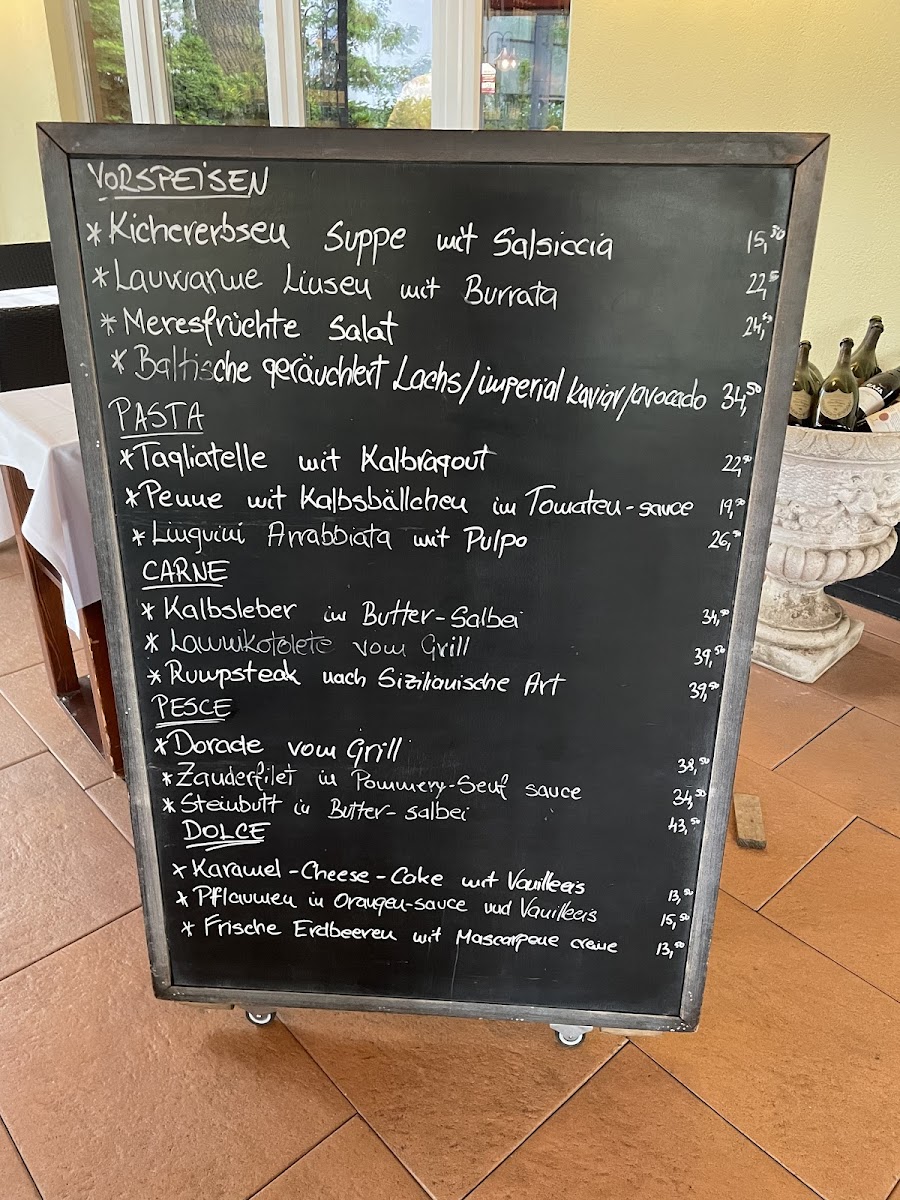 VORSPEISEN
* Kichererbsen Suppe mit Salsiccia 15,50
* Lauwarme Linsen mit Burrata 22,5
* Meresfrüchte Salat 24,50
* Baltische geräuchert Lachs/imperial kaviar/avocado 34,50
PASTA
* Tagliatelle mit Kalbragout 22,50
* Penne mit Kalbsbällchen im Tomaten-sauce 19,50
* Linguini Arrabbiata mit Pulpo 26,50
CARNE
* Kalbsleber in Butter-Salbei 34,50
* Lammkotolete vom Grill 39,50
* Rumpsteak nach Sizilianische Art 39,50
PESCE
* Dorade vom Grill 38,50
* Zanderfilet in Pommery-Senf sauce 34,50
* Steinbutt in Butter-salbei 43,50
DOLCE
* Karamel-Cheese-Cake mit Vanilleeis 13,50
* Pflaumen in Orangen-sauce und Vanilleeis 15,50
* Frische Erdbeeren mit Mascarpone creme 13,50